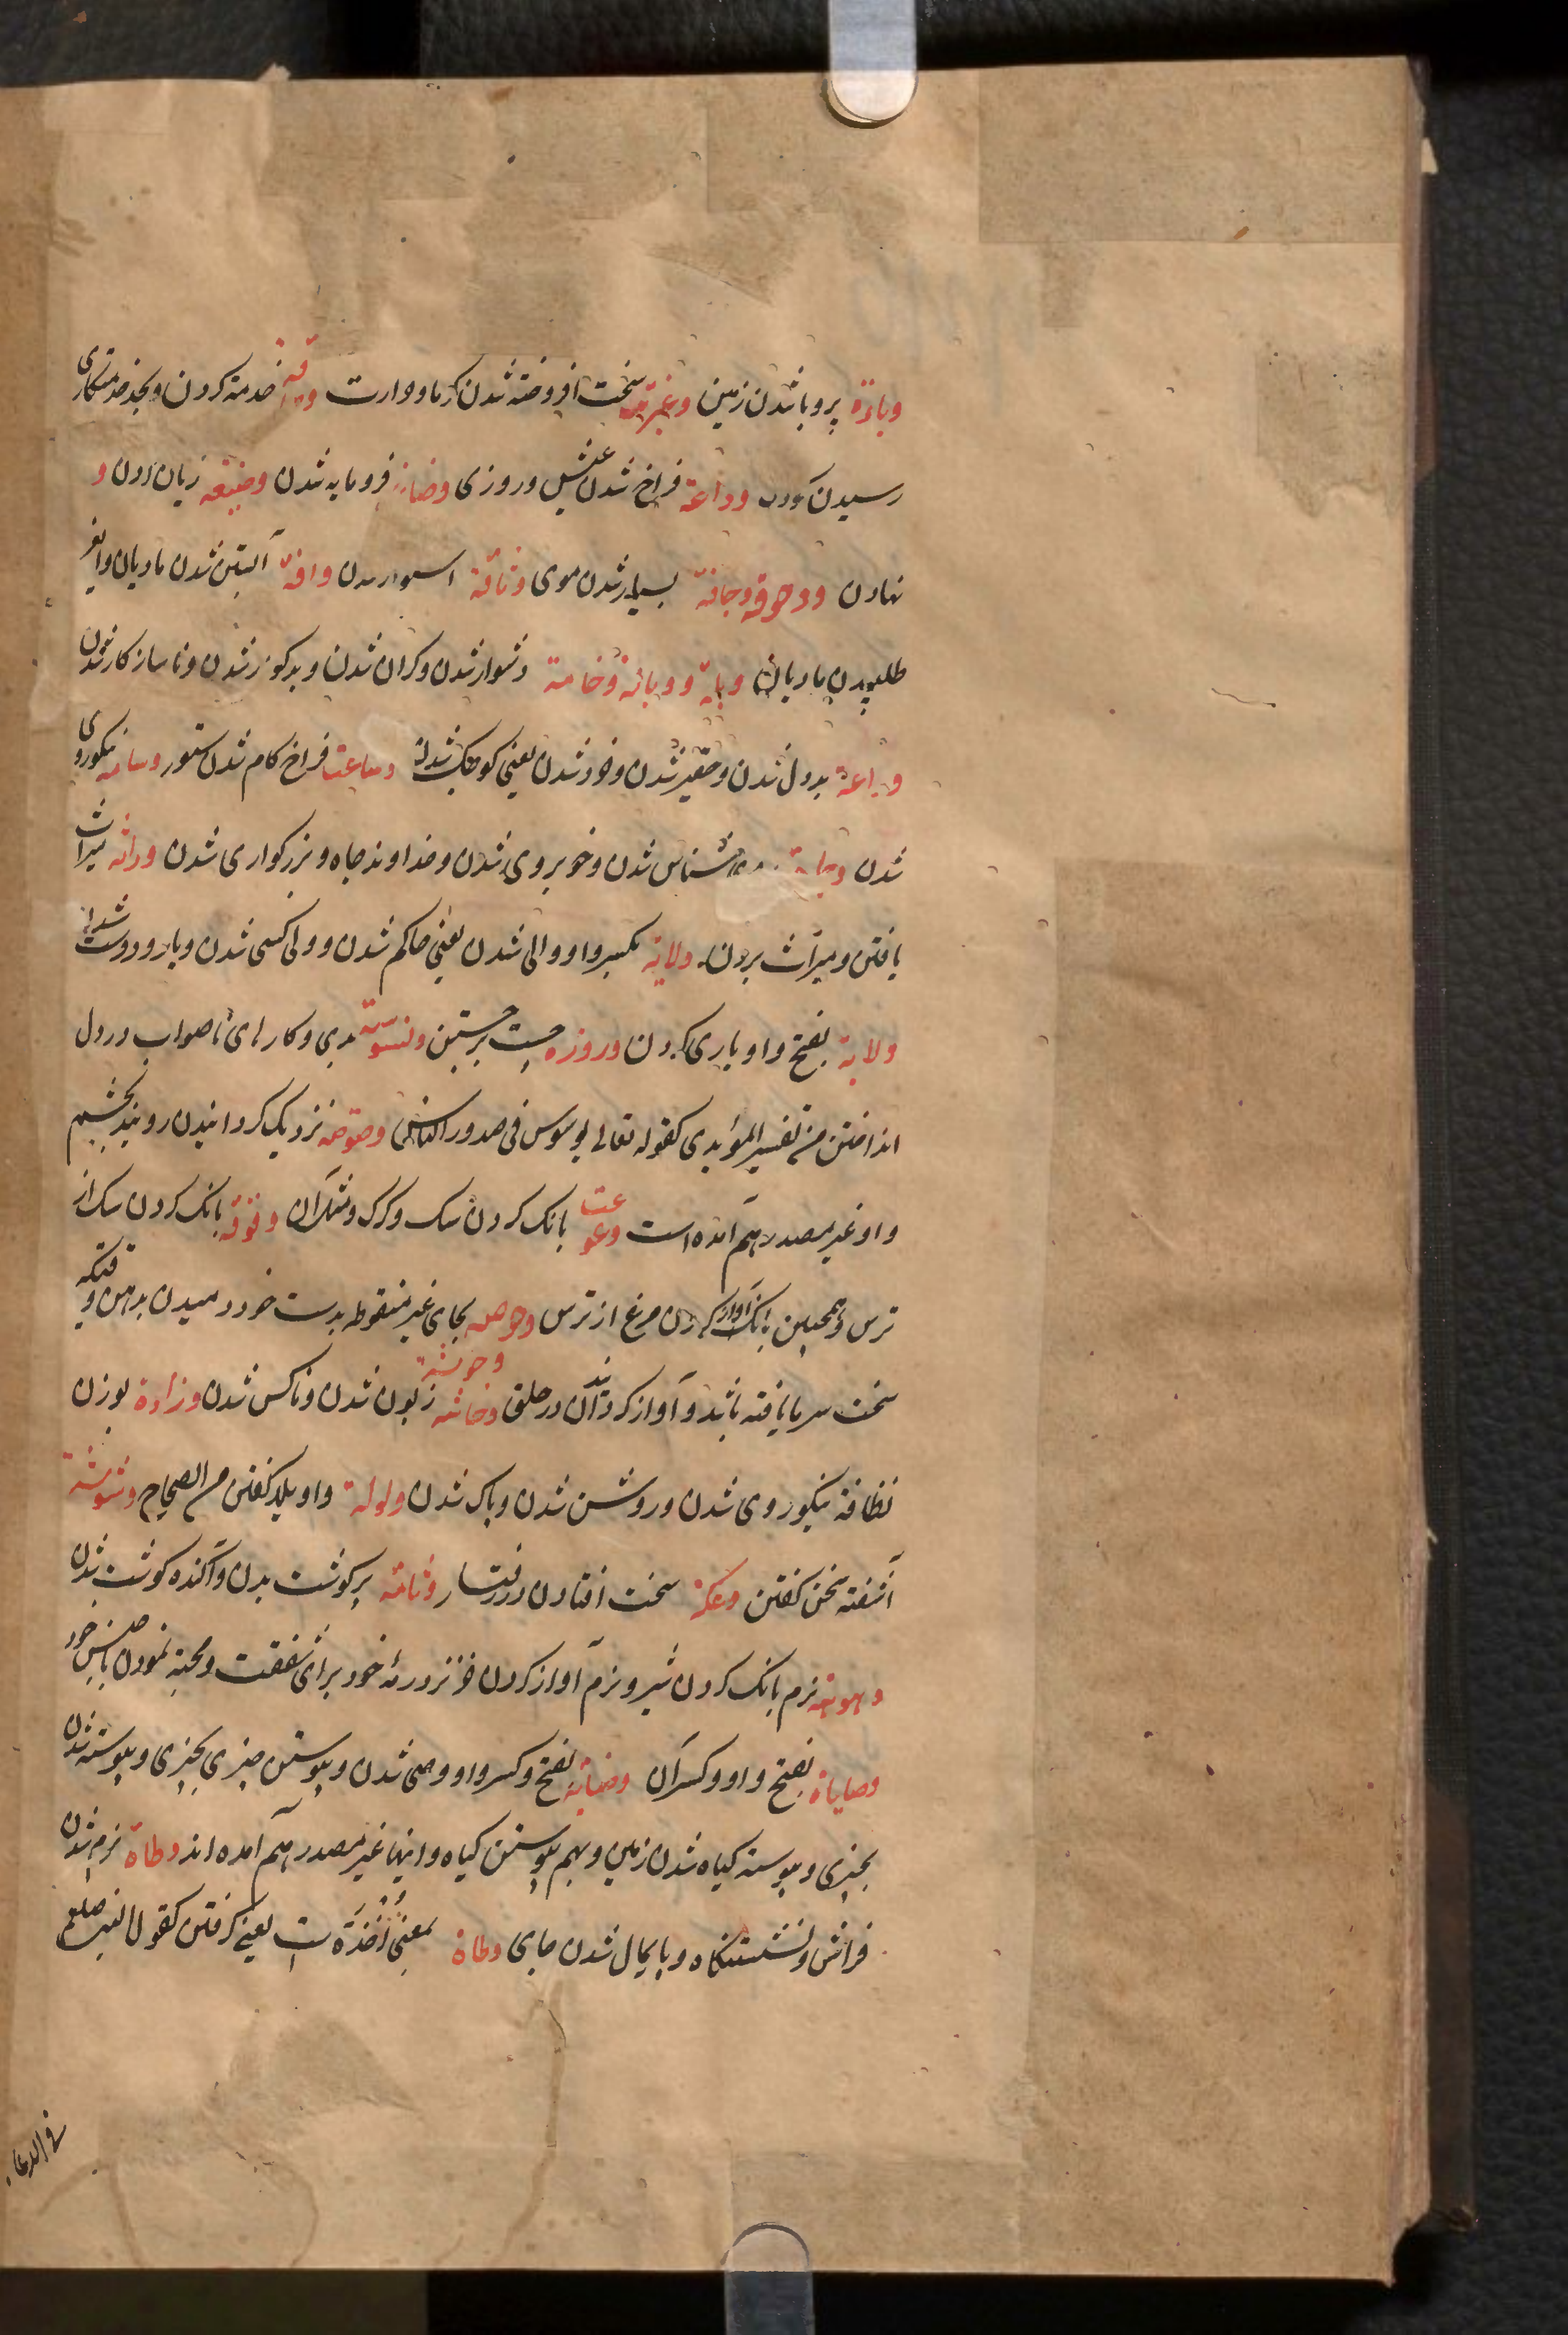 وباءة پر وبا شدن زمین وغرة سخت افروخته شدن کرما وحرارت خدمة کردن وبحد خدمتکاری
رسیدن کودک وداعة فراخ شدن عیش وروزی فرومایه شدن وضیعه زیان زدن و
نهادن ووحوفة وجافة بسیار شدن موی وثاقة استوار شدن آبستن شدن مادیان
طلبیدن مادیان ووبائة وخامة دشوار شدن وکران شدن وبدکوار شدن وناسازکار شدن
وراعة بددل شدن وحقیر شدن وخورد شدن یعنی کوچک شدن وساعت فراخ کام شدن ستور وسامه نیکوروی
شدن شناس شدن وخوبروی شدن وخداوند جاه وبزرکواری شدن وراثه میراث
یافتن ومیراث بردن ولایة بکسر واو والی شدن یعنی حاکم شدن وولی کسی شدن ویار ودوست شدن
ولایة بفتح واو یاری کردن برجستن وسوسة بدی وکارهای ناصواب در دل
انداختن من تفسیر المؤبدی کقوله تعالی یوسوس فی صدور الناس وصوصه نزدیک کردانیدن روبند بچشم
واو غیر مصدر هم آمده است وعوعت بانک کردن سک وکرک وشکران وقوقة بانک کردن سک از
ترس وهمچنین بانک آواز کردن مرغ از ترس وحوحه بحای غیر منقوطه بدست خود دمیدن وقتیکه
سخت سرما یافته باشد وآواز کردن در حلق وخاشه زبون شدن وناکس شدن بوزن
نظافة نیکوروی شدن وروشن شدن وپاک شدن ولولة واویلا کفتن من الصحاح وشوشة
آشفته سخن کفتن وعکة سخت افتادن در رفتار وثامة پرکوشت بدن وآکنده کوشت شدن
وهوهه نرم بانک کردن شیر ونرم آواز کردن خر نزد رمهٔ خود برای شفقت ومحبة نمودن با جنس خود
وصایاة بفتح واو وکسر آن بفتح وکسر واو وصی شدن وپیوستن چیزی بچیزی وپیوسته شدن
بچیزی وپیوسته کیاه شدن زمین وبهم پیوستن کیاه واینها غیر مصدر هم آمده اند وطاة نرم شدن
فراش ونشستنکاه وپایمال شدن جای وطاة بمعنی أخذة ست یعنی کرفتن کقول النبی صلعم